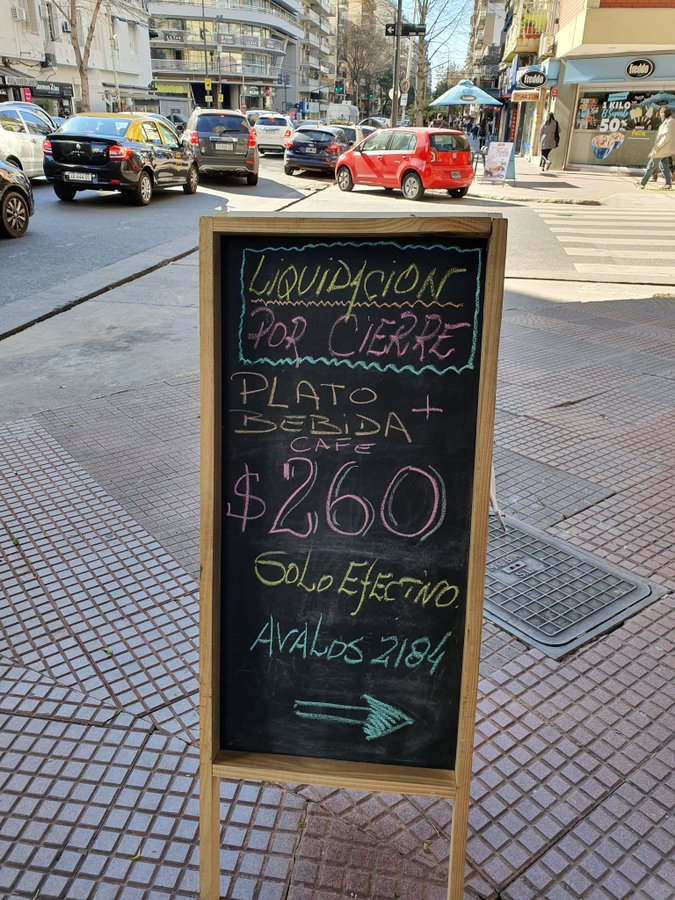 freddo
freddo
1 KILO
50%
LIQUIDACION
POR CIERRE
PLATO +
BEBIDA
CAFE
$260
SOLO EFECTIVO.
AVALOS 2184